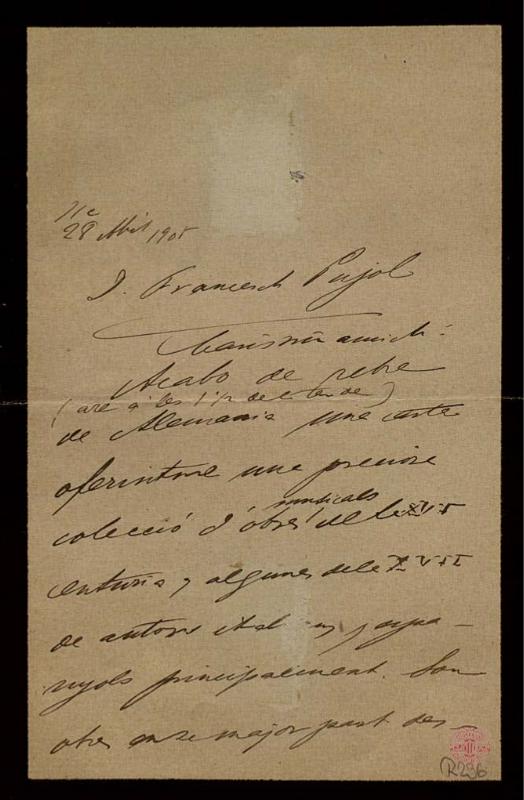 28 Abril 1905
D. Francesch Pujol
Caríssim amich:
Acabo de rebre
(are á les 1½ de la tarde)
de Alemania una carta
oferintme una preciosa
colecció d'obres musicals de la XVI
centuria y algunes de la XVII
de autors italians y espa-
nyols principalment. Son
obres en sa major part des
R236